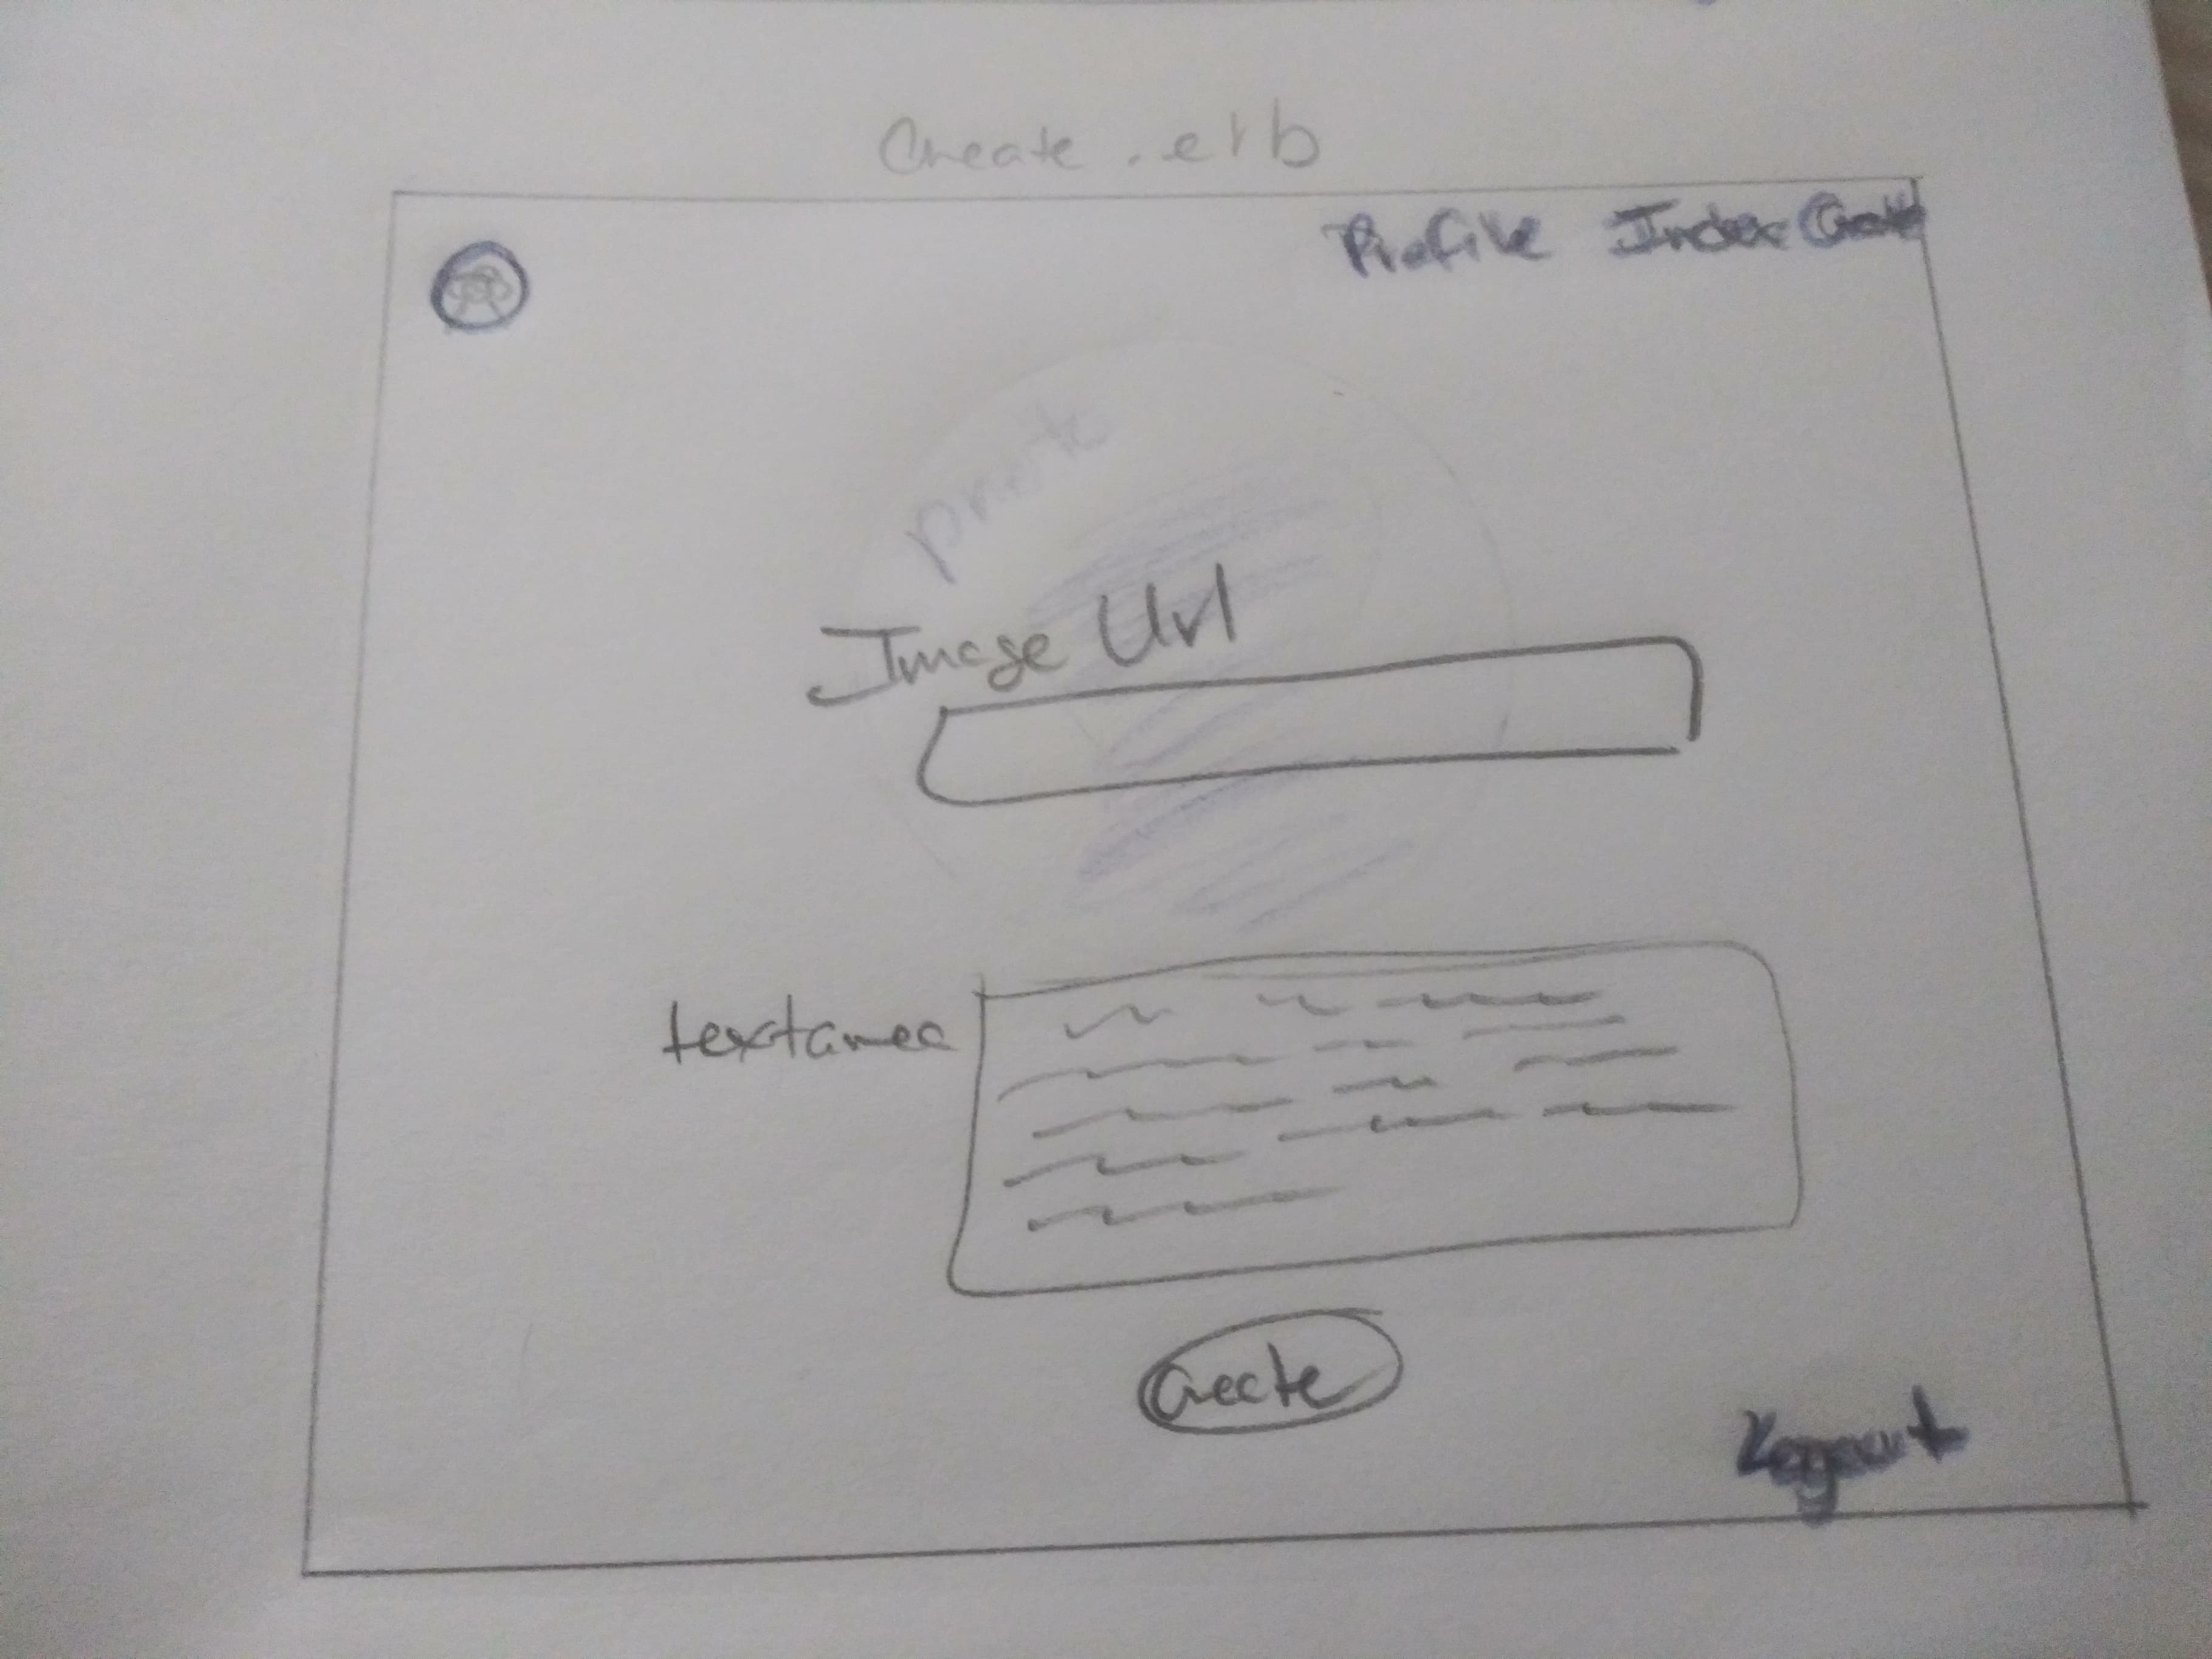 Create.erb
Profile Index Create
Image Url
textarea
Create
Logout